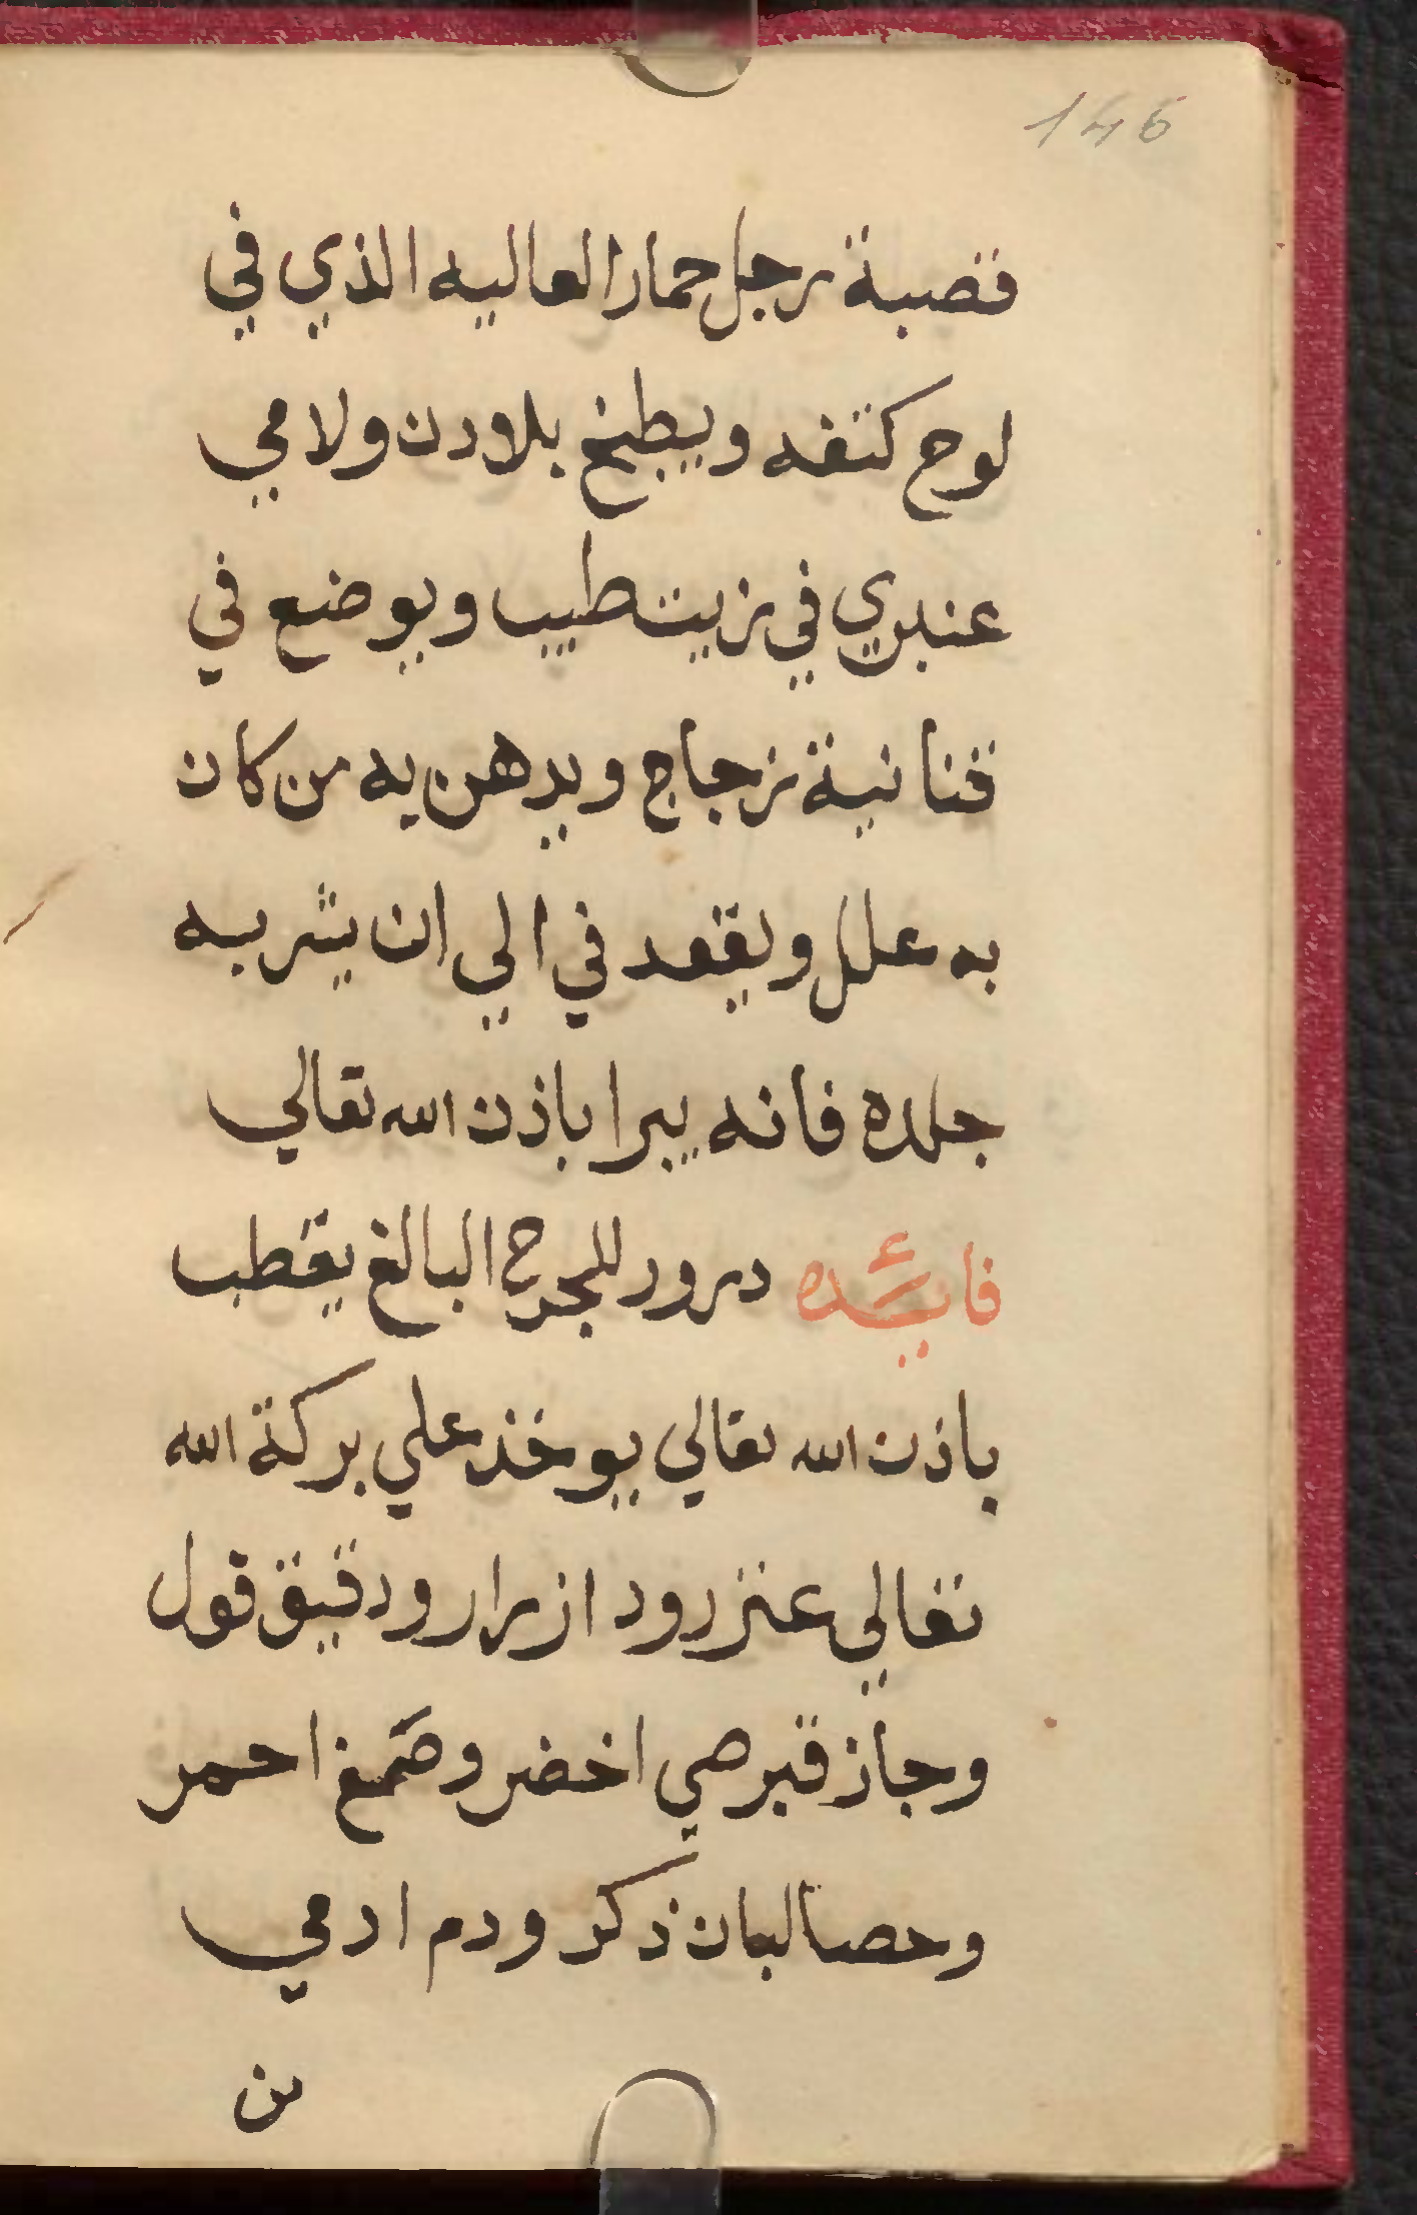 146
قصبة رجل حمار العاليه الذي في
لوح كتفه ويطبخ بلاودن ولامي
عنبري في زيت طيب ويوضع في
قنانية زجاج ويدهن به من كان
به علل ويقعد في الي ان يشربه
جلده فانه يبرا باذن الله تعالي
فايئده درور للجرح البالغ يقطب
باذن الله تعالي يوخذ علي بركة الله
تعالي عنزرود ازرار ودقيق قول
وجاز قبرصي اخضر وصمغ احمر
وحصالبان ذكر ودم ادمي